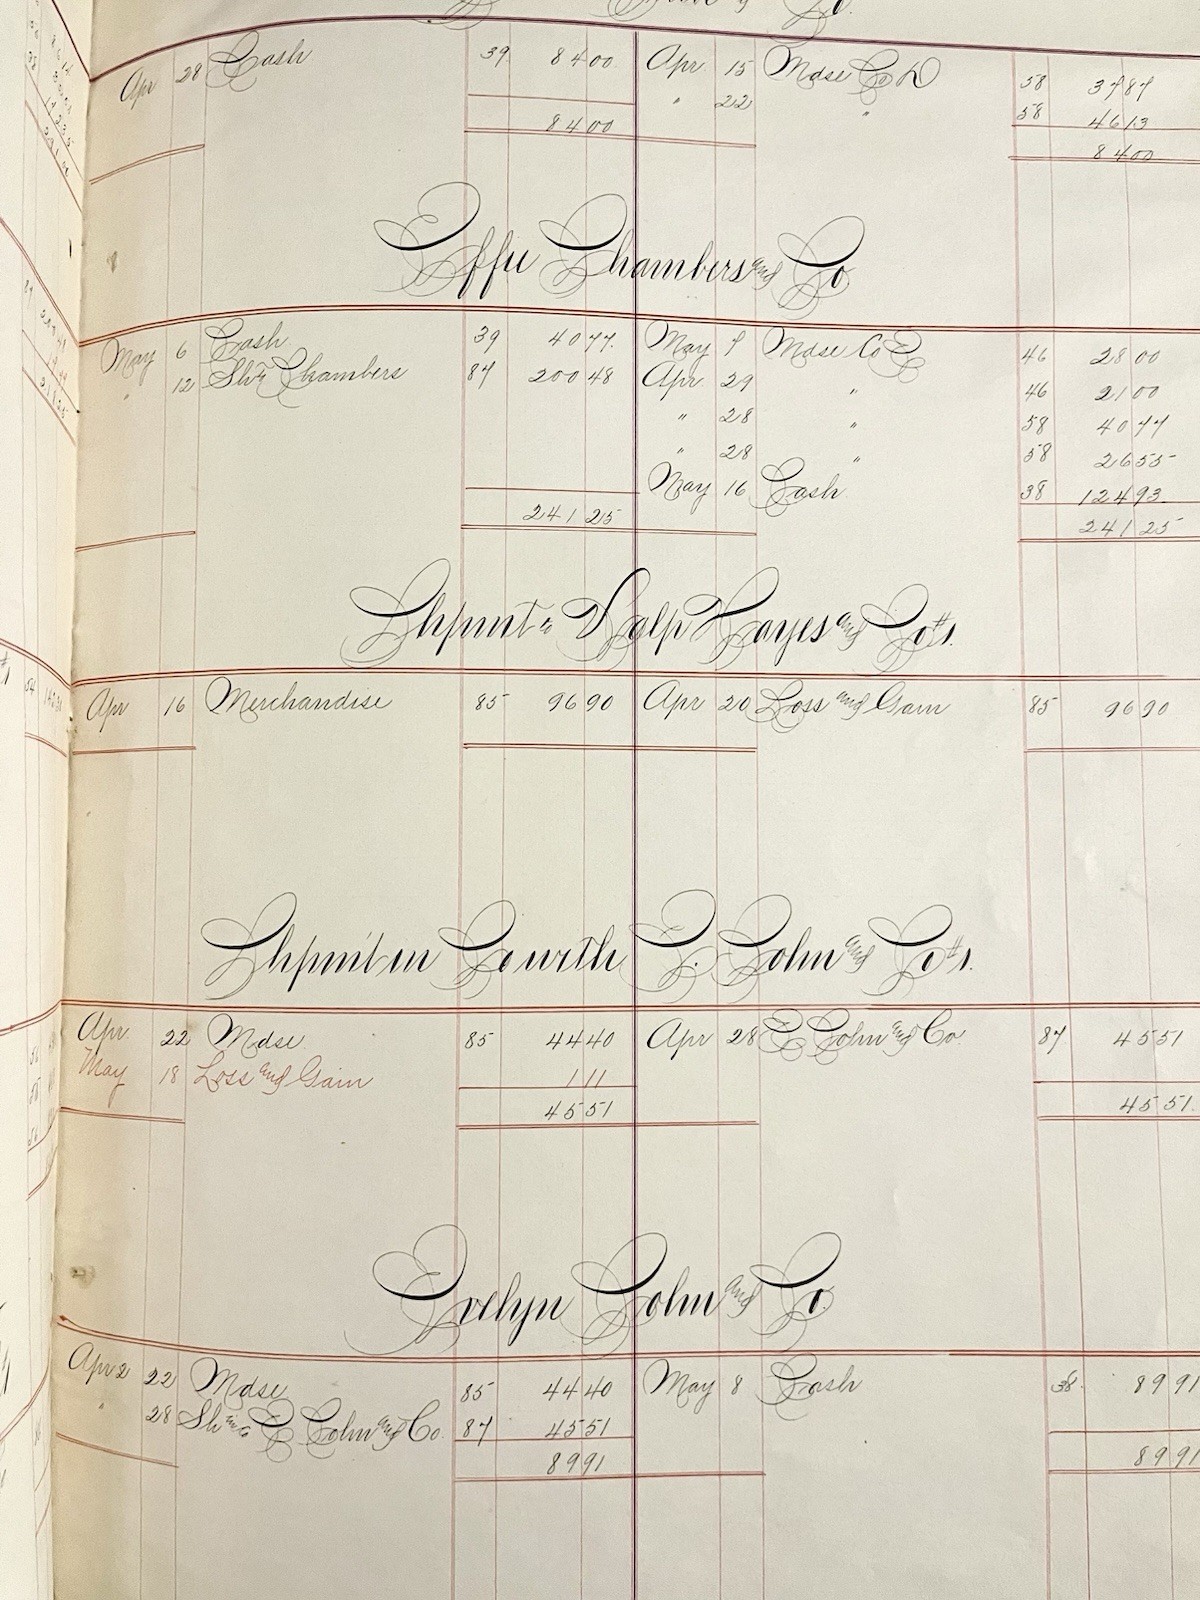 Co.
Apr 28 Cash 39 84 00 Apr 15 Mdse Co D 58 37 87
" 22 " 58 46 13
84 00 84 00
Effie Chambers and Co
May 6 Cash 39 40 77 May 9 Mdse Co E 46 28 00
" 12 Chambers 87 200 48 Apr 29 " 46 21 00
" 28 " 58 40 77
" 28 " 58 26 55
May 16 Cash 38 124 93
241 25 241 25
Shpmt Ralp Hayes and Co #1.
Apr 16 Merchandise 85 96 90 Apr 20 Loss and Gain 85 96 90
Shpmt in Co with E. Cohn and Co #1.
Apr 22 Mdse 85 44 40 Apr 28 E Cohn and Co 87 45 51
May 18 Loss and Gain 1 11
45 51 45 51
Evelyn Cohn and Co.
Apr 22 Mdse 85 44 40 May 8 Cash 38 89 91
" 28 Sh E Cohn and Co 87 45 51
89 91 89 91